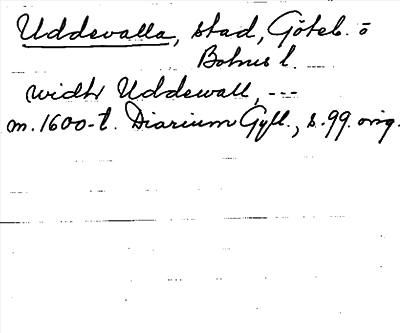 Uddevalla, stad, Göteb. o
Bohus l.
widh Uddewall, ---
m. 1600-t. Diarium Gyll., s. 99. orig.